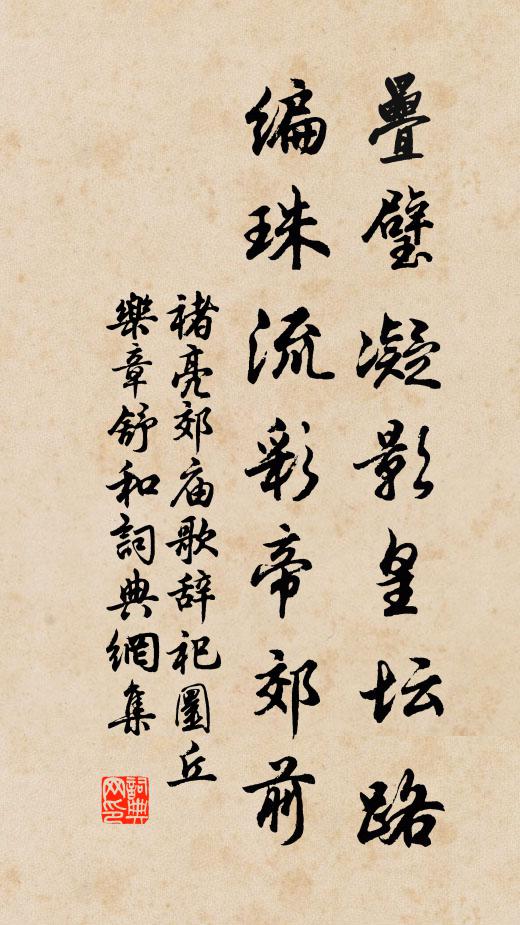 疊璧凝影皇坛路
编珠流彩帝郊前
褚亮郊庙歌辞祀圜丘
樂章舒和詞典網集
詞典网印